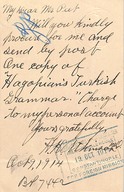 My Dear Mr Peet
Will you kindly
procure for me and
send by post
One copy of
Hagopian's Turkish
Grammar. Charge
to my personal account
Yours gratefully,
Oct 7, 1914